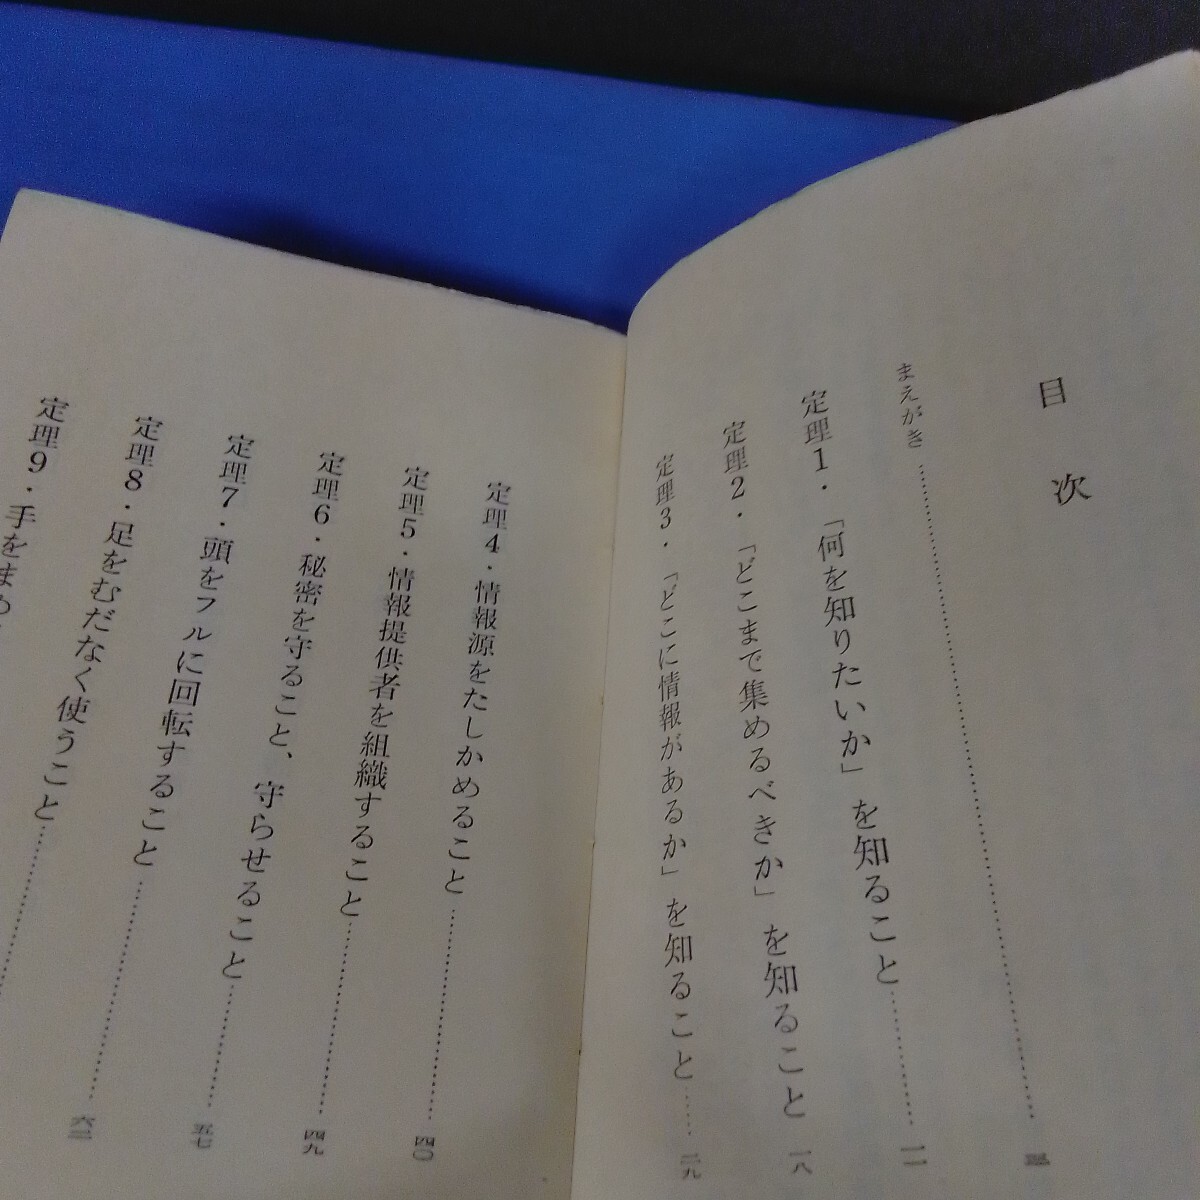 目次
まえがき……………………
定理1・「何を知りたいか」を知ること…………一一
定理2・「どこまで集めるべきか」を知ること 一八
定理3・「どこに情報があるか」を知ること……二九
定理4・情報源をたしかめること…………四〇
定理5・情報提供者を組織すること…………四九
定理6・秘密を守ること、守らせること…………五七
定理7・頭をフルに回転すること…………
定理8・足をむだなく使うこと…………
定理9・手をまめ